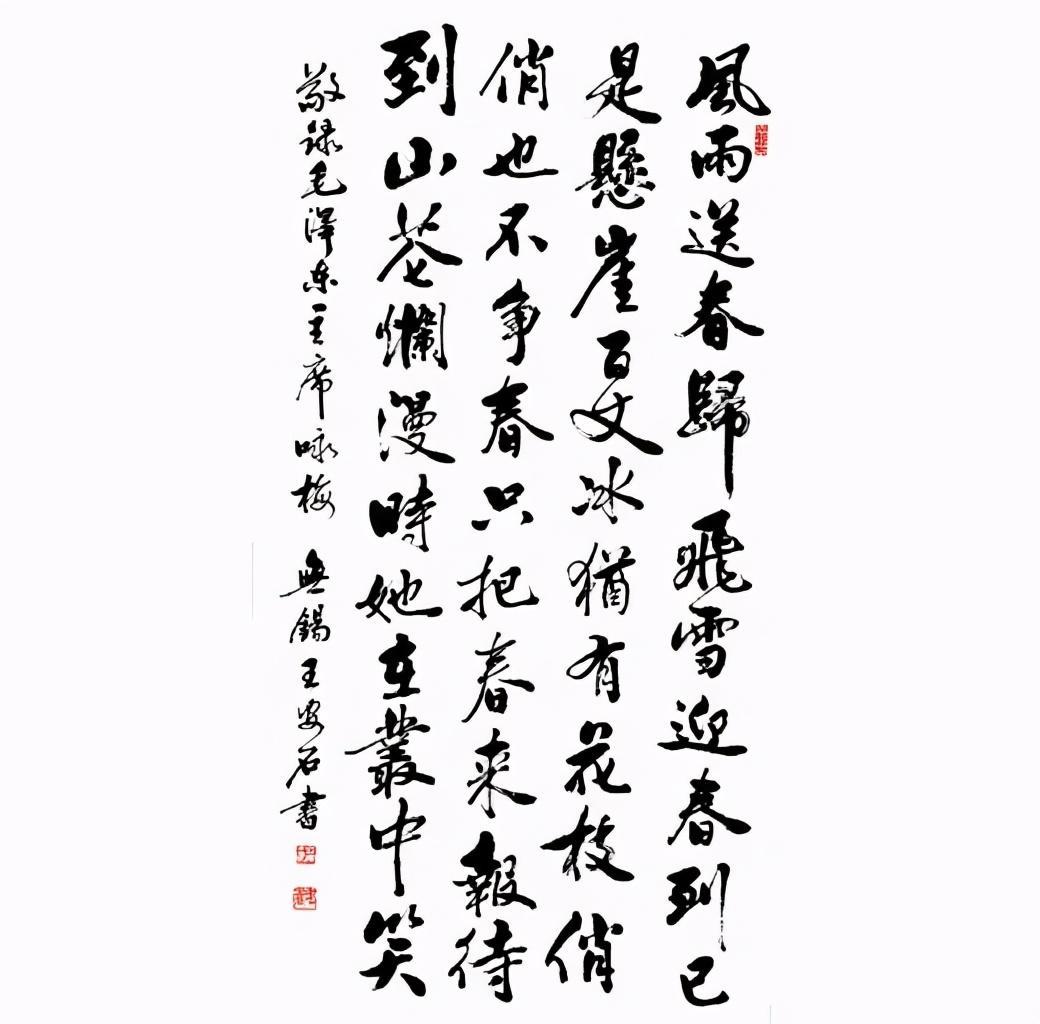 風雨送春歸飛雪迎春到已
是懸崖百丈冰猶有花枝俏
俏也不争春只把春来報待
到山花爛漫時她在叢中笑
敬録毛澤东主席咏梅 無錫王安石書